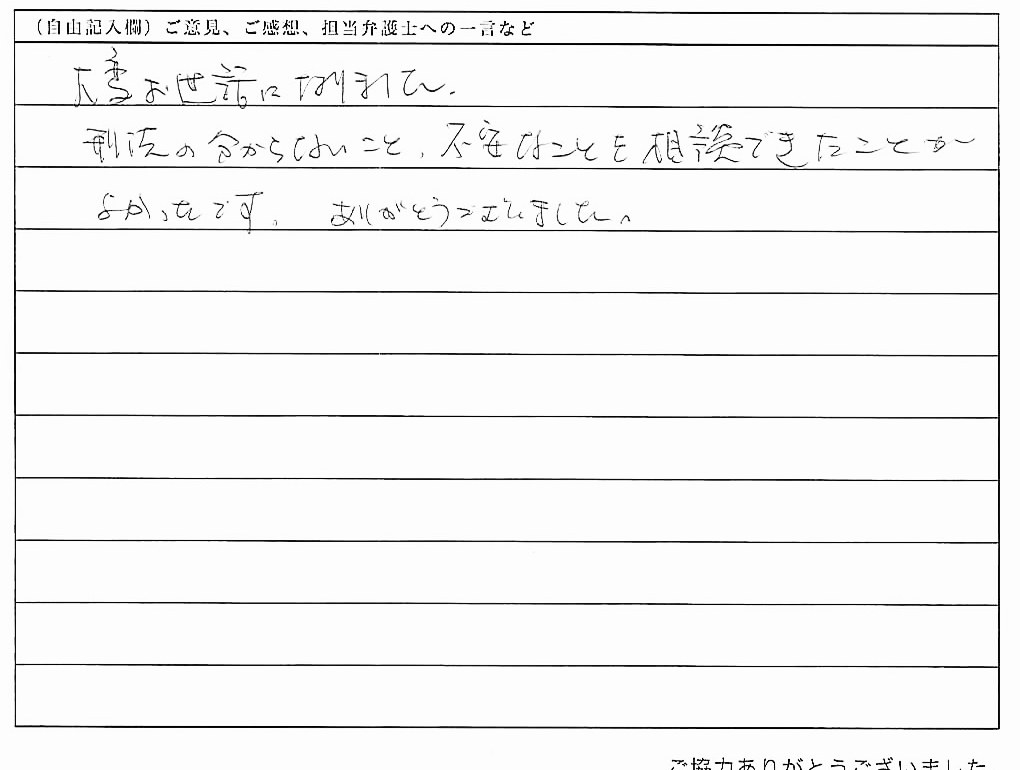 （自由記入欄）ご意見、ご感想、担当弁護士への一言など
大変お世話になりました。
刑法の分からないこと、不安なことを相談できたことが
よかったです。ありがとうございました。
ご協力ありがとうございました